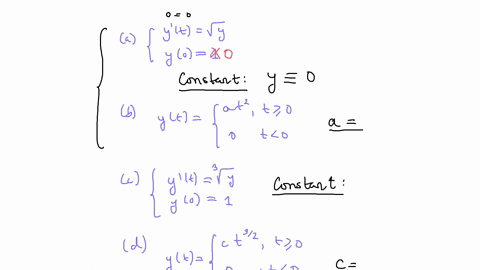 0 = 0
(a) { y'(t) = √y
y(0) = 0
Constant: y ≡ 0
(b) y(t) = { at², t ≥ 0
0 t < 0
a =
(c) { y'(t) = ∛y
y(0) = 1
Constant:
(d) y(t) = { c t^3/2, t ≥ 0
0 t < 0
c =